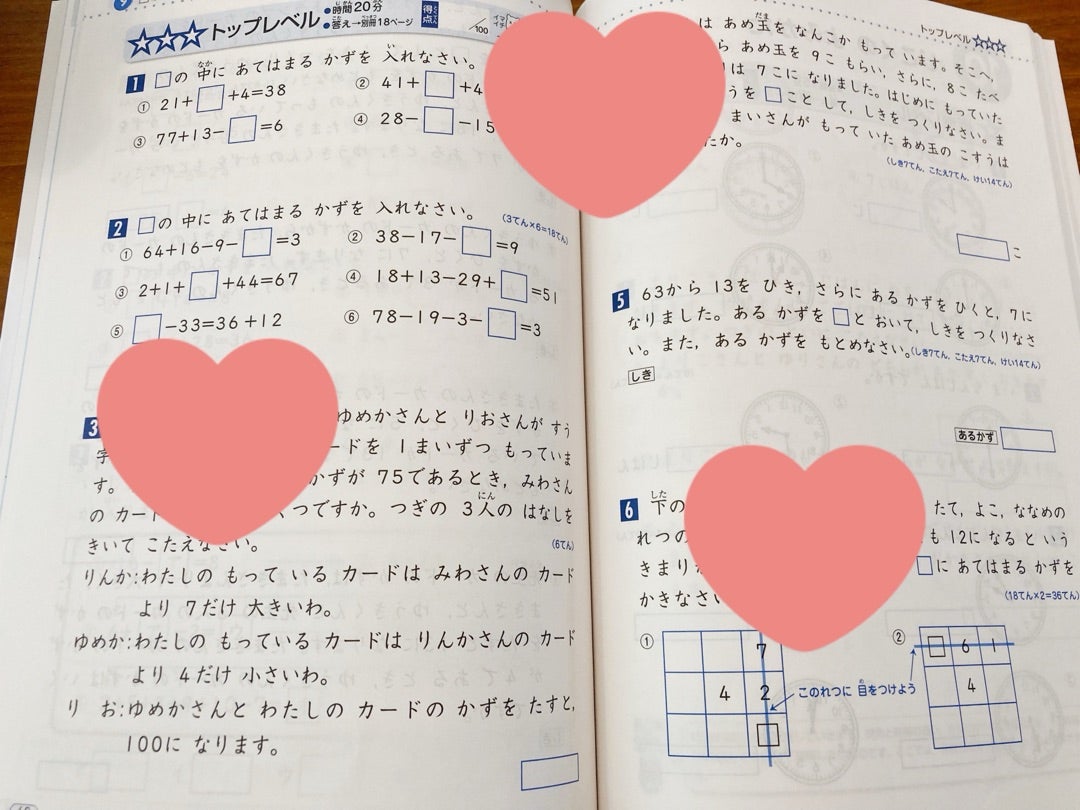 トップレベル
●時間20分
●答え→別冊18ページ
得点
/100
1 □の 中に あてはまる かずを 入れなさい。
① 21+□+4=38
② 41+□+4
③ 77+13-□=6
④ 28-□-15
2 □の 中に あてはまる かずを 入れなさい。
(3てん×6=18てん)
① 64+16-9-□=3
② 38-17-□=9
③ 2+1+□+44=67
④ 18+13-29+□=51
⑤ □-33=36+12
⑥ 78-19-3-□=3
3
ゆめかさんと りおさんが すう
字
ードを 1まいずつ もっていま
す。
かずが 75であるとき,みわさん
の カー
くつですか。つぎの 3人の はなしを
きいて こたえなさい。
(6てん)
りんか:わたしの もって いる カードは みわさんの カード
より 7だけ 大きいわ。
ゆめか:わたしの もっている カードは りんかさんの カード
より 4だけ 小さいわ。
り お:ゆめかさんと わたしの カードの かずを たすと,
100に なります。
トップレベル
は あめ玉を なんこか もって います。そこへ,
ら あめ玉を 9こ もらい,さらに,8こ たべ
は 7こに なりました。はじめに もっていた
うを □ことして,しきを つくりなさい。ま
まいさんが もって いた あめ玉の こすうは
たか。
(しき7てん,こたえ7てん,けい14てん)
こ
5 63から 13を ひき,さらに ある かずを ひくと,7に
なりました。ある かずを □と おいて,しきを つくりなさ
い。また,ある かずを もとめなさい。
(しき7てん,こたえ7てん,けい14てん)
しき
あるかず
6 下の
たて,よこ,ななめの
れつの
も 12に なる という
きまり
□に あてはまる かずを
かきなさい
(18てん×2=36てん)
①
7
4 2
□
このれつに 目をつけよう
②
□ 6 1
4